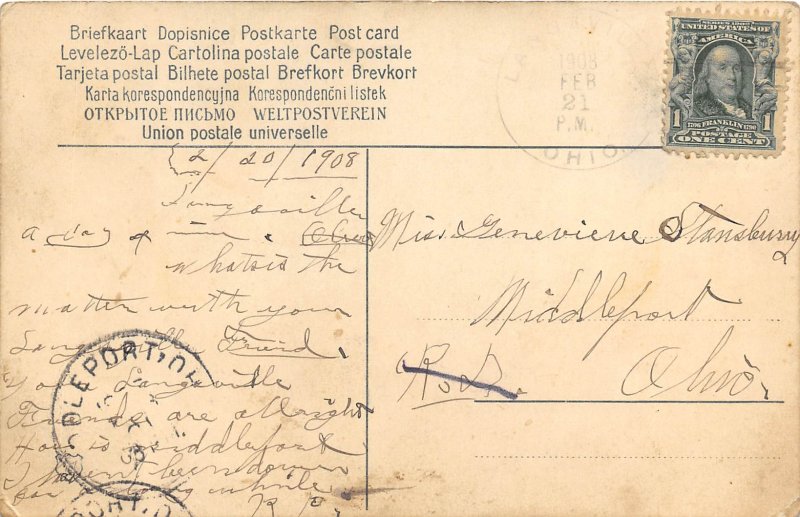 Briefkaart Dopisnice Postkarte Post card
Levelező-Lap Cartolina postale Carte postale
Tarjeta postal Bilhete postal Brefkort Brevkort
Karta korespondencyjna Korespondenční lístek
ОТКРЫТОЕ ПИСЬМО WELTPOSTVEREIN
Union postale universelle
1908
FEB
21
P.M.
OHIO.
SERIES 1902
UNITED STATES OF
AMERICA
1706 FRANKLIN 1790
1 POSTAGE 1
ONE CENT
2/20/1908
Langsville
a day of Ohio
whats is the
matter with your
Langsville Friend.
Your Langsville
Friends are allright
How is Middleport
I havent been down
for a long while
R.
Miss. Genevieve Stansbury
Middleport
R.D.
Ohio.
DLEPORT, O
PORT, O